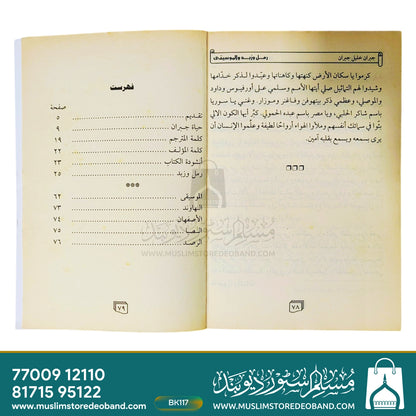 جبران خليل جبران
رمـل وزبـد والموسيقى
كرموا يا سكان الأرض كهنتها وكاهناتها وعيّدوا لذكر خدامها
وشيدوا لهم التماثيل صلي أيتها الأمم وسلمي على أورفيوس وداود
والموصلي، وعظمي ذكر بيتهوفن وفاغنر وموزار. وغني يا سوريا
باسم شاكر الحلبي، ويا مصر باسم عبده الحمولي. كبّر أيها الكون الألى
بثوا في سمائك أنفسهم وملأوا الهواء أرواحًا لطيفة وعلّموا الإنسان أن
يرى بسمعه ويسمع بقلبه آمين.
٧٨
فهرست
صفحة
تقديم ٥
حياة جبران ٩
كلمة المترجم ١٩
كلمة المؤلف ٢٢
أنشودة الكتاب ٢٣
رمل وزبد
***
الموسيقى ٦٢
النهاوند ٧٣
الأصفهان ٧٤
الصبا ٧٥
الرصد ٧٦
٧٩
مسلم سٹور دیوبند
WWW.MUSLIMSTOREDEOBAND.COM
77009 12110
81715 95122
www.muslimstoredeoband.com
BK117
مسلم سٹور دیوبند
WWW.MUSLIMSTOREDEOBAND.COM